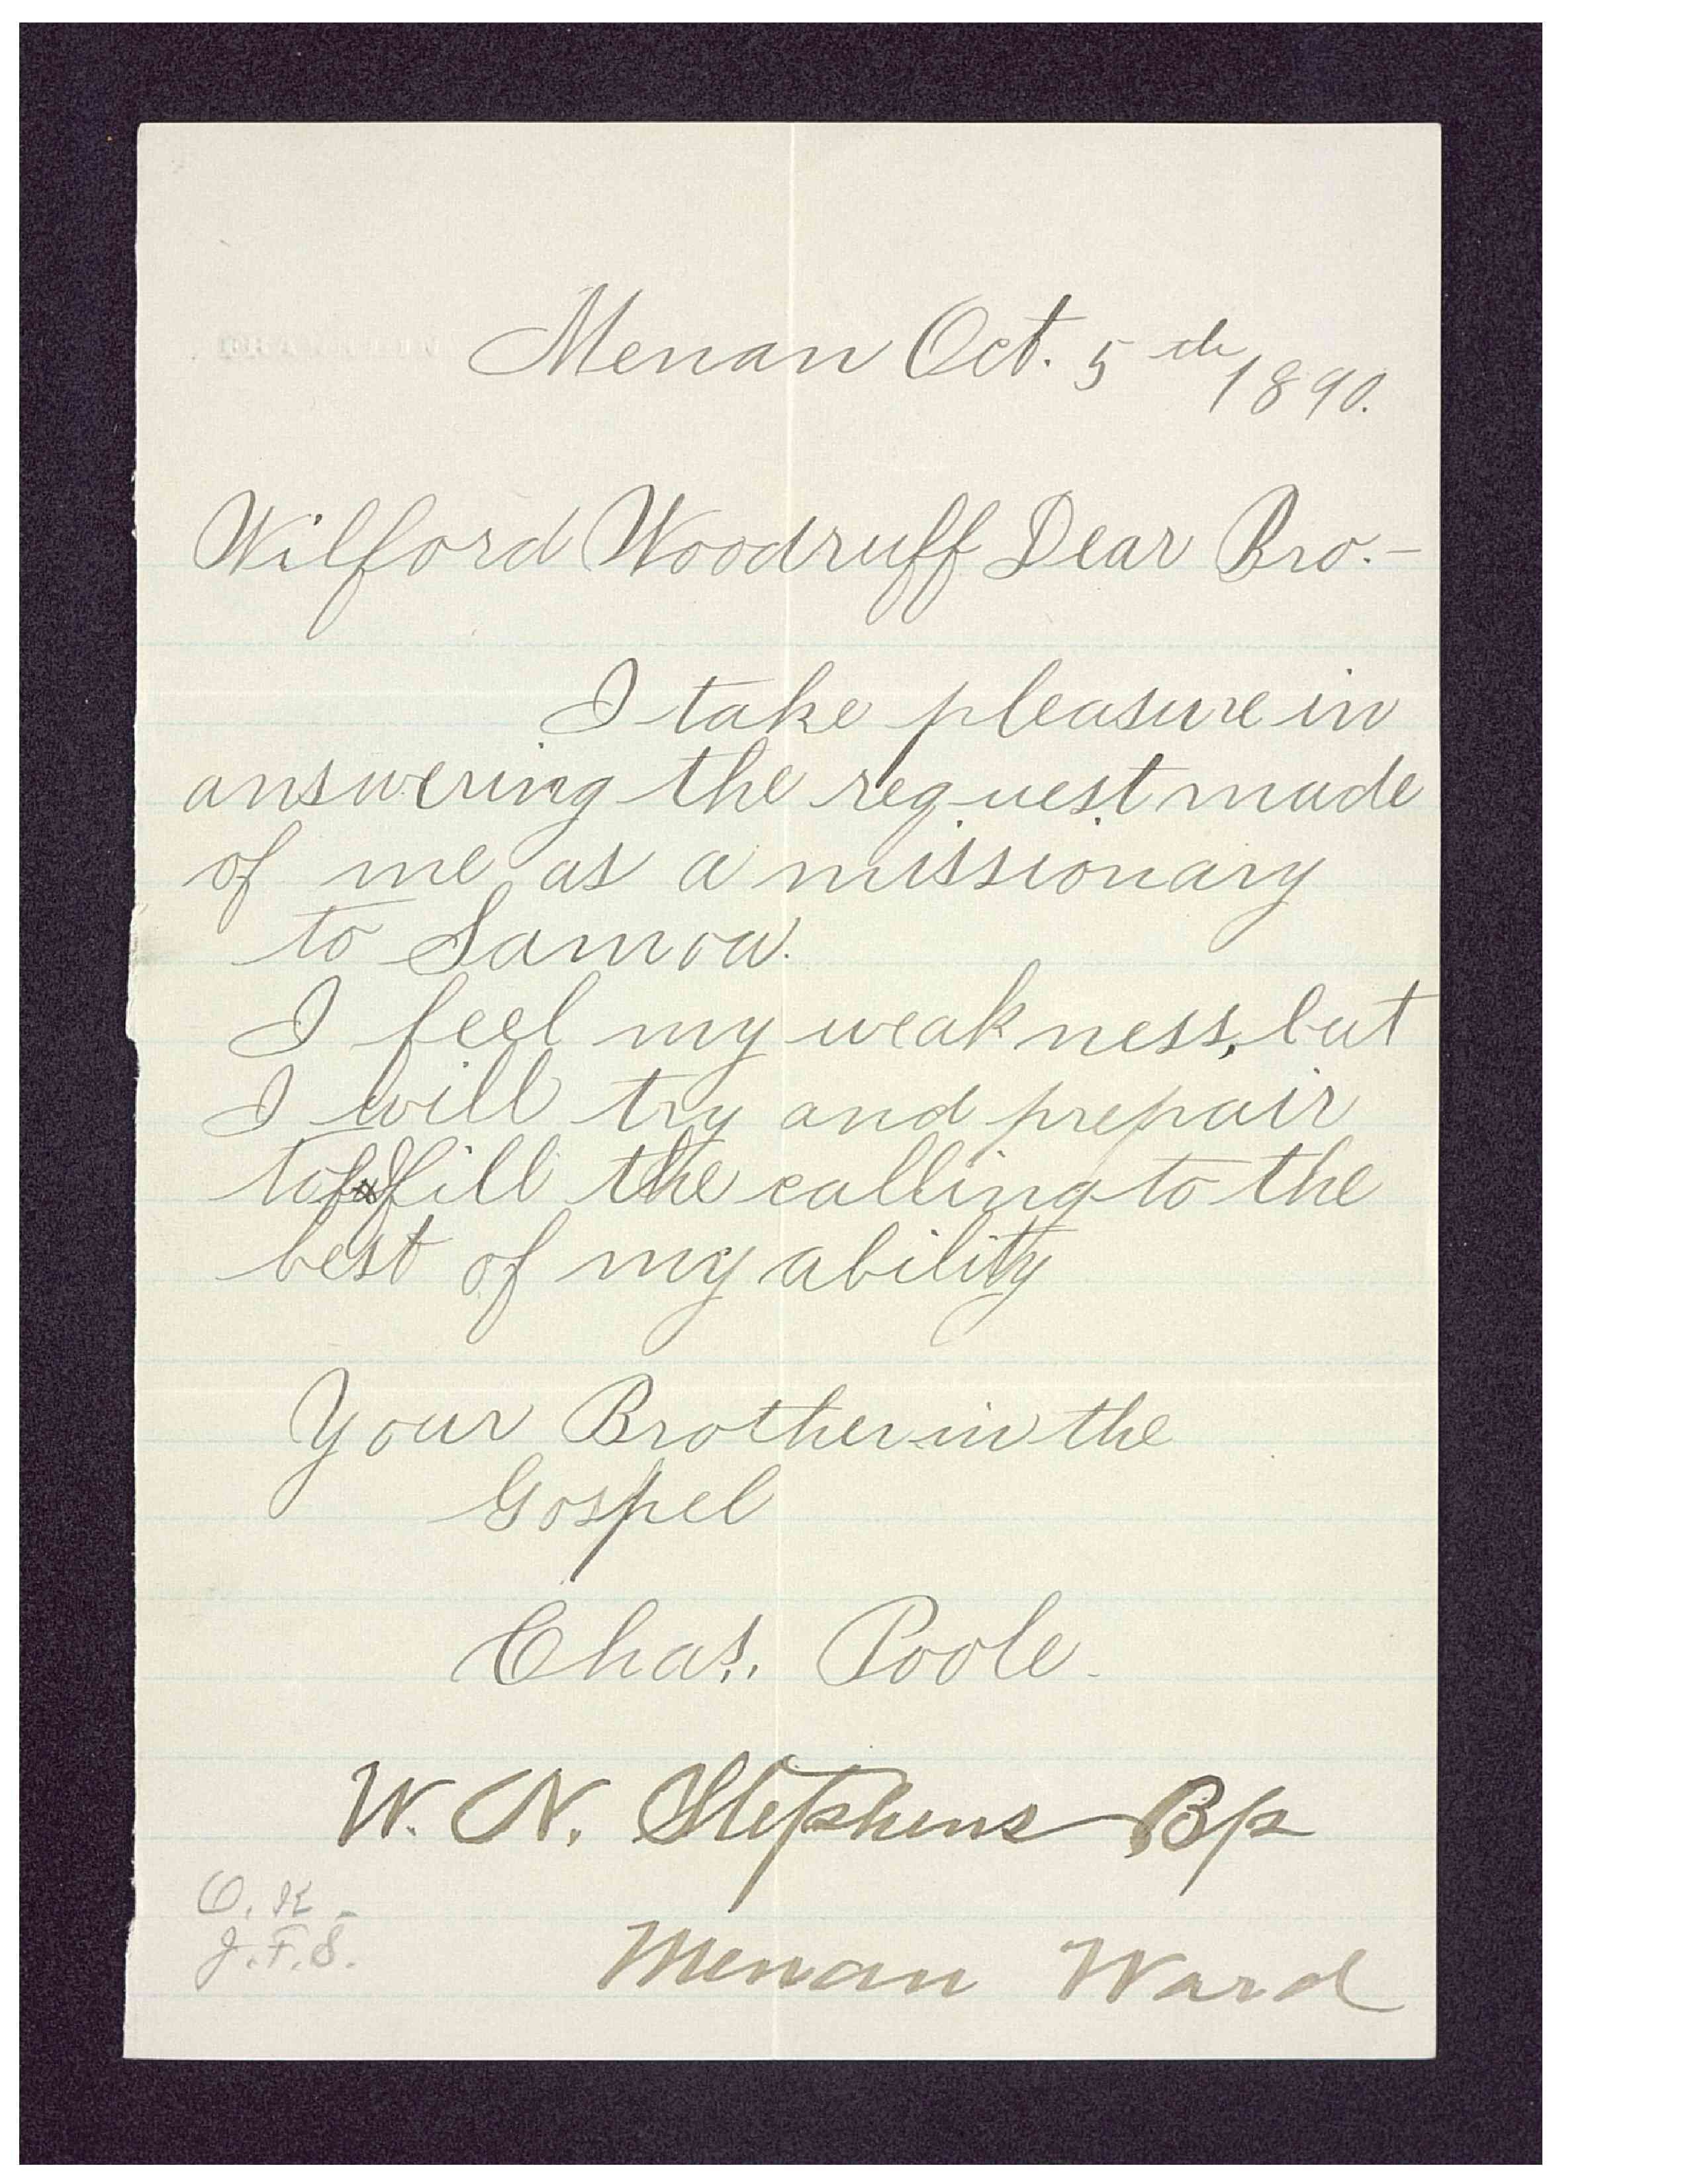 Menan Oct. 5th 1890.
Wilford Woodruff Dear Bro.-
I take pleasure in
answering the request made
of me as a missionary
to Samoa.
I feel my weakness, but
I will try and prepair
to fill the calling to the
best of my ability
Your Brother in the
Gospel
Chas. Poole.
W. N. Stephens Bp
O. K. -
J. F. S.
Menan Ward